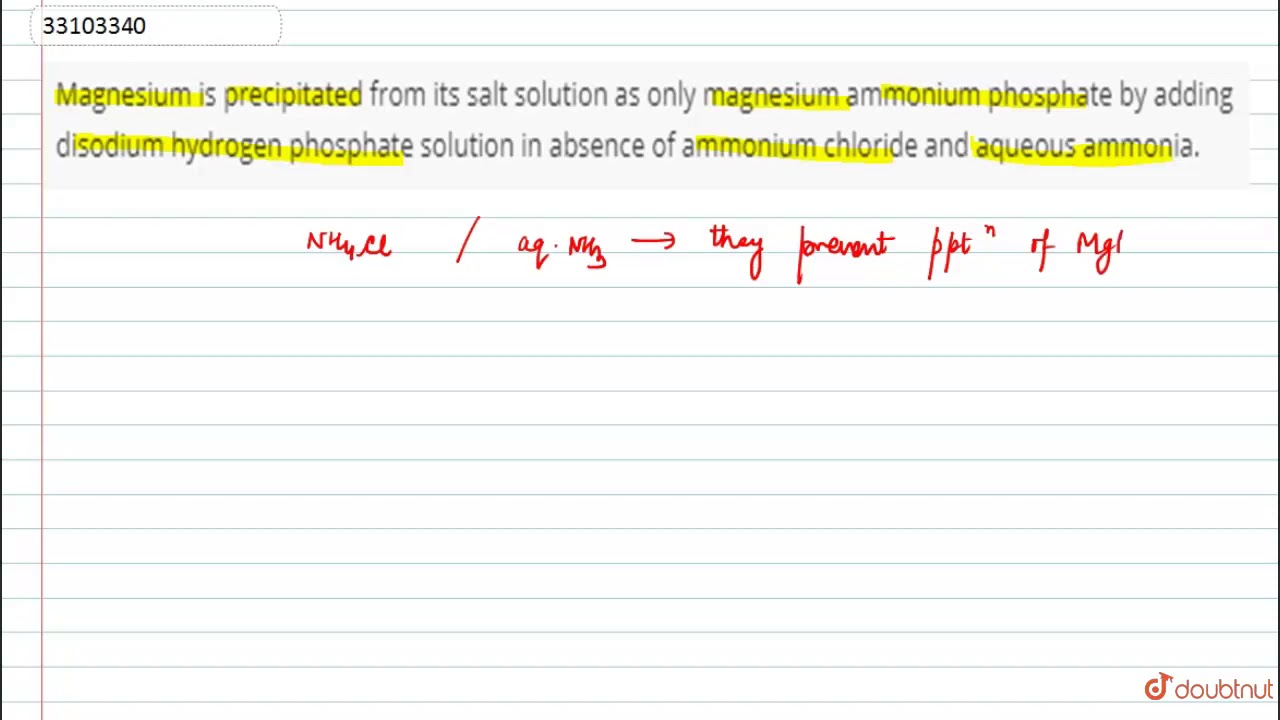 33103340
Magnesium is precipitated from its salt solution as only magnesium ammonium phosphate by adding
disodium hydrogen phosphate solution in absence of ammonium chloride and aqueous ammonia.
NH4Cl / aq. NH3 → they prevent pptⁿ of Mg(
doubtnut